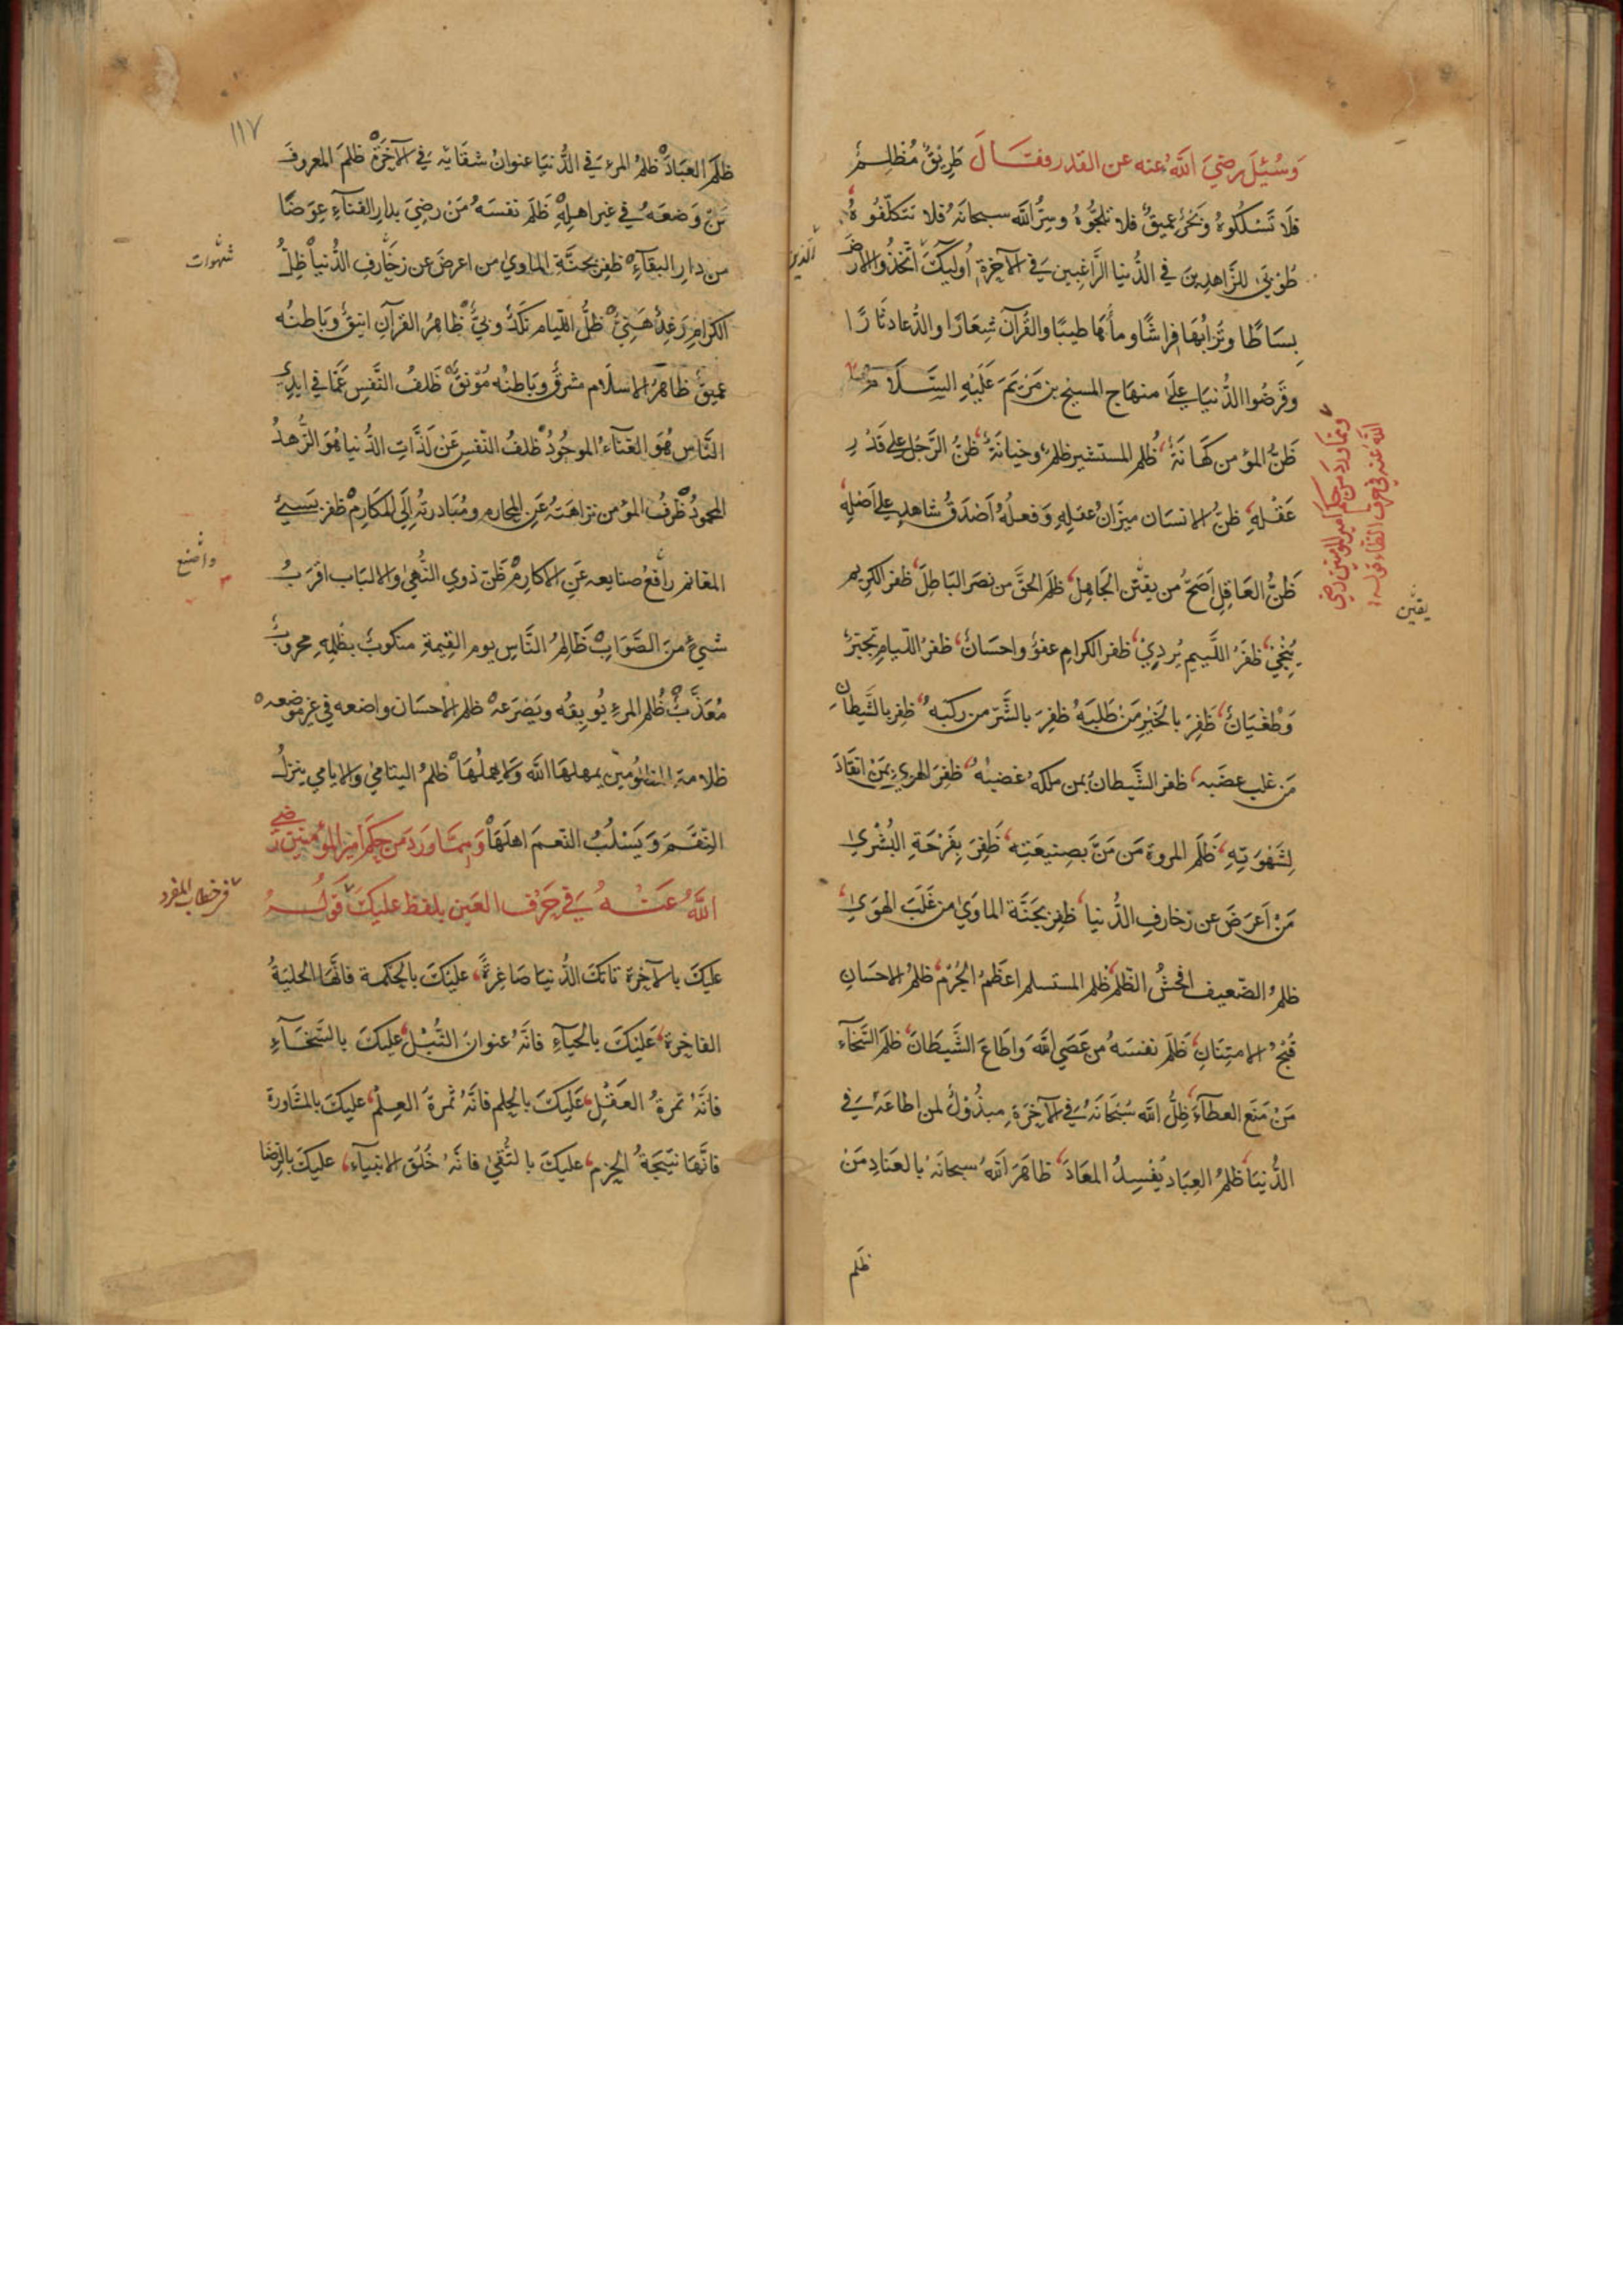 وَسُئِلَ رضيَ اللَّه عنه عن القدر فقَالَ طَرِيْقٌ مُظْلِمٌ
فلَا تَسْلكُوهُ وَبَحْرٌ عميقٌ فلا تلجُّوهُ وسِرُّ اللَّه سبحانهُ فلا تتكلّفُوهُ
طُوبيٰ للزَّاهدِينَ في الدُّنيا الرَّاغبِين في الآخرةِ أُوليكَ اتّخذُوا الارضَ
الذين
بِسَاطًا وتُرَابُهَا فِراشًا وماُهَا طيبًا والقُرآنَ شِعَارًا والدُّعا دثَارًا
وقَرضُوا الدُّنيَا عليٰ منهَاج المسيح بن مَرْيَمَ عَلَيْهِ السَّلَام
وممّا ورد من حكم امير المؤمنين رضي
اللَّه عنه في حرف الظاء قوله
ظَنُّ المؤمن كَهَانَةٌ ظُلم المستشير ظلمٌ وخيانَةٌ ظنُّ الرَّجُل علي قَدْرِ
عَقْلهِ ظنُّ الانسَان ميزَانُ عقلِهِ وَفعلُهُ أَصْدَقُ شاهدٍ علي أَصْلِهِ
ظَنُّ العَاقِل أَصَحُّ من يقيْن الجَاهِل ظلَم الحقَّ من نصَر البَاطِلَ ظفر الكريم
يقين
يُنْجيْ ظفَرُ اللَّييم يُرديْ ظفر الكرام عفوٌ واحسَانٌ ظفرُ اللّيام تجبّرٌ
وَطُغْيَانٌ ظَفِرَ بالخَيْرِ مَنْ طَلبَهُ ظفِرَ بالشَّرّ من ركبَهُ ظفِر بالشَّيطانِ
مَن غلب غضَبه ظفر الشَّيطانُ بمن ملكهُ غضبُهُ ظفِرَ الهويٰ بمَنْ انقَادَ
لِشَهْوَتِهِ ظَلَم المروة مَن مَنَّ بصنيعَتِه ظَفِرَ بِفَرْحَةِ البُشْريٰ
مَنْ اَعرَضَ عن زخارفِ الدُّنيا ظفِر بجَنَّة الماويٰ من غَلَبَ الهَويٰ
ظلمُ الضّعيف افحشُ الظّلم ظلم المستسلم اعظَمُ الجُرْم ظلمُ الاحسَانِ
قُبْحُ الامتِنَانِ ظَلَم نفسَهُ من عَصَي اللَّه وَاطَاعَ الشَّيطَانَ ظلَم السَّخَاء
مَنْ مَنَع العطآءَ ظِلُّ اللَّه سُبْحَانَهُ في الآخِرَةِ مبذُوْلٌ لمن اطاعَهُ في
الدُّنيَا ظلمُ العِبَاد يُفْسِدُ المعَادَ ظاهَرَ اللَّه سبحانَهُ بالعنَادِ مَنْ
ظلم
١١٧
ظلَم العبَادَ ظلمُ المرءِ في الدُّنيَا عنوانُ شقَائِه في الآخِرَة ظلَمَ المعروفَ
مَنْ وَضعَهُ في غير اهلِهِ ظَلَم نفسَهُ مَنْ رضِيَ بدارِ الفنآءِ عِوَضًا
من دارِ البقآءِ ظفِر بجنَّةِ الماويٰ من اعرضَ عن زخَارفِ الدُّنيا ظِلُّ
شهوات
الكرام رَغِدٌ هَنِيٌّ ظلُّ اللّيام نَكَدٌ وبيٌّ ظاهِرُ القرآنِ انيقٌ وبَاطنُه
عميقٌ ظَاهرُ الاسلَام مشرقٌ وبَاطنُه مُوْنقٌ ظَلَفُ النَّفسِ عَمَّا في ايدِي
النَّاس هُوَ الغنَآءُ الموجُودُ ظلفُ النّفسِ عَنْ لَذَّاتِ الدُّنيا هُوَ الزُّهدُ
المحمودُ ظَرفُ المؤمن نزاهَتُهُ عَنِ المحارم ومُبَادرتُهُ إلي المكَارم ظفِر بسَنِيِّ
المغانم رافعُ صنايعه عَنِ الاكارِم ظَنّ ذوي النُّهيٰ والالبَاب اقرَبُ
واضع
شيءٍ منَ الصَّوَابِ ظَالِمُ النَّاسِ يوم القِيٰمةِ منكوبٌ بظُلمِهِ محروبٌ
مُعَذَّبٌ ظُلم المرءِ يُوبِقُه ويَصْرَعهُ ظلم الاحسَان واضعه في غير موضعه
ظلامة المظلُوْمِين يمهلهَا اللَّه وَلا يهملُهَا ظلمُ اليتامٰي والايامي ينزلُ
النِّقَمَ وَيَسْلُبُ النّعمَ اهلَهَا وَمِمَّا وَرَدَ من حِكَم امير المُؤمنين رضي
اللَّهُ عَنْهُ في حَرْف العَين بلفظ عليكَ قَوْلُهُ
في خطاب المفرد
عليكَ بالآخِرة تاتكَ الدُّنيَا صَاغِرةً عليْكَ بالحكمة فانَّهَا الحليَةُ
الفاخِرة عَليْكَ بالحيَآءِ فانَّهُ عنوانُ النُّبْل عليكَ بالسَّخَآءِ
فانّهُ ثمرةُ العَقْلِ عَلَيكَ بالحِلم فانَّهُ ثمرَةُ العِلمْ عليكَ بالمشاورة
فانَّهَا نتيجَةُ الحزم عليكَ بالتُّقيٰ فانَّهُ خُلُق الانبيآء عليكَ بالرِّضَا